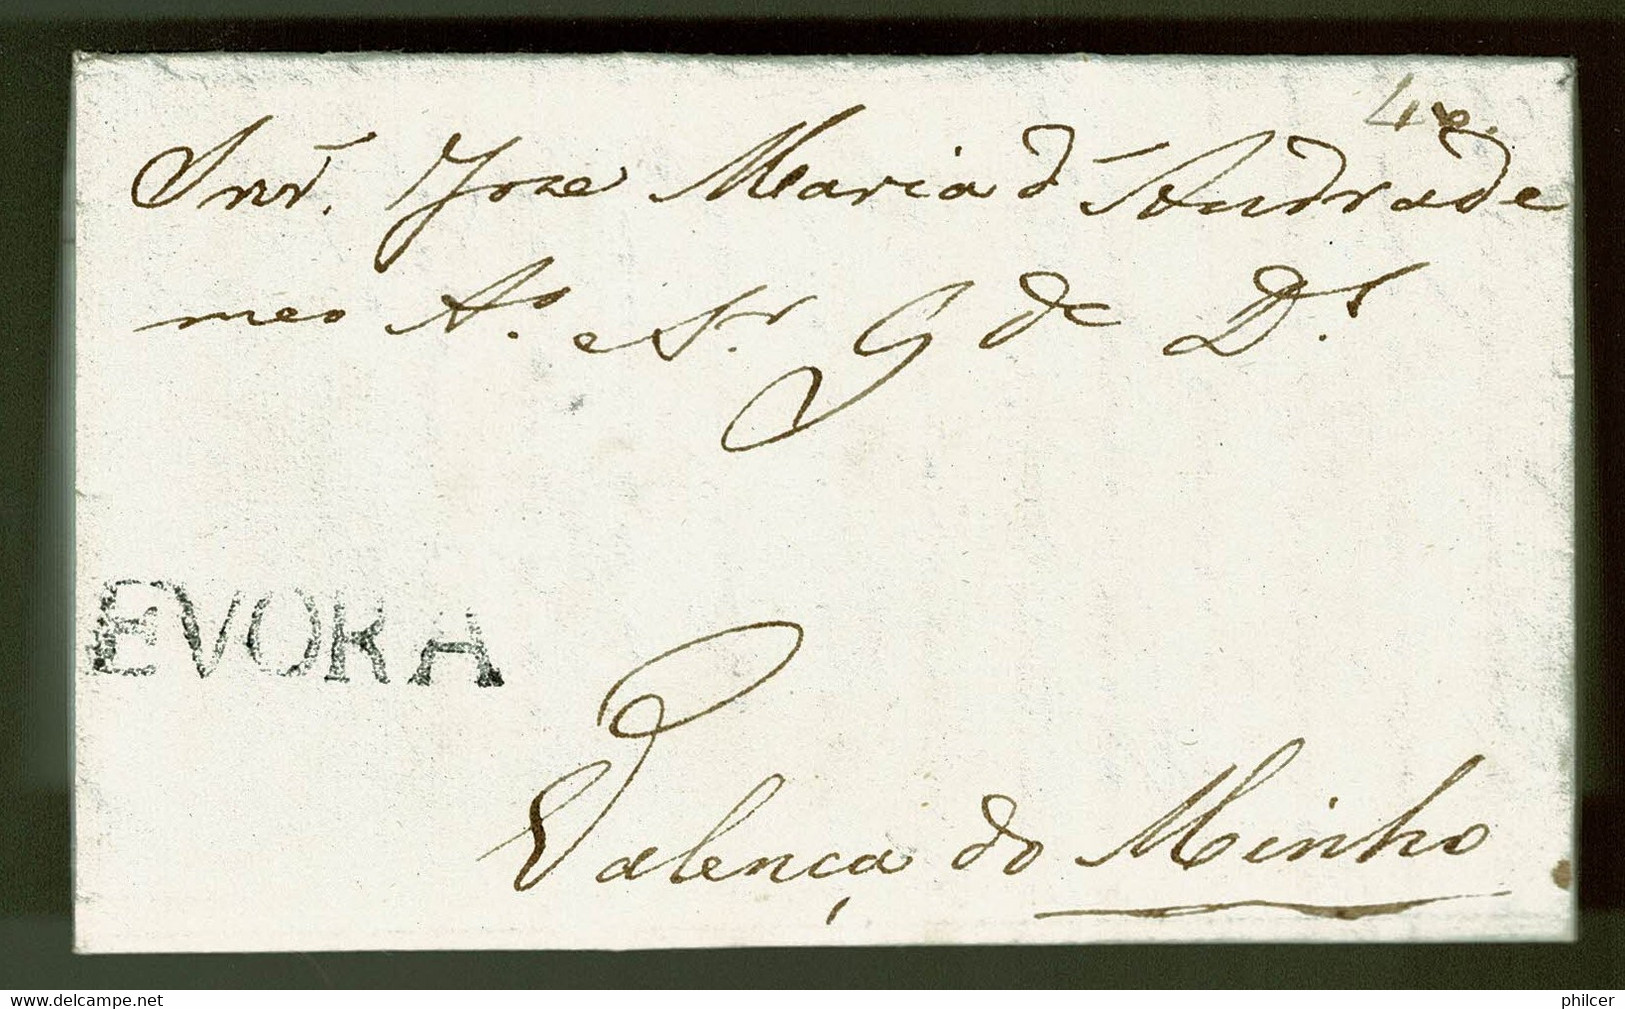 40.
Snr. Joze Maria d'Andrade
meo A.º e Sr. G de D.s
EVORA
Valença do Minho
delcampe.net
philcer